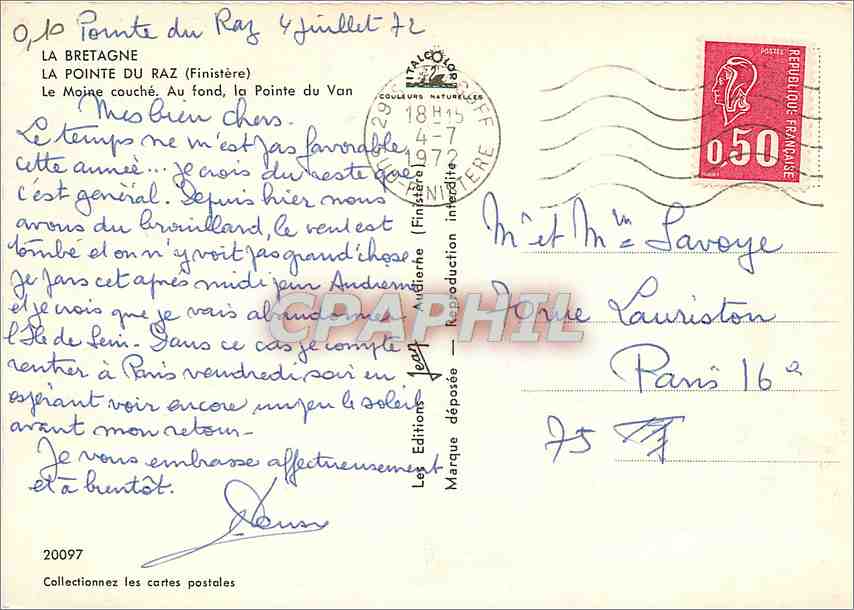 0,10 Pointe du Raz 4 Juillet 72
LA BRETAGNE
LA POINTE DU RAZ (Finistère)
Le Moine couché. Au fond, la Pointe du Van
Mes bien chers.
Le temps ne m'est pas favorable
cette année... je crois du reste que
c'est général. Depuis hier nous
avons du brouillard, le vent est
tombé et on n'y voit pas grand'chose
Je pars cet après midi pour Audierne
et je crois que je vais abandonner
l'Ile de Sein. Dans ce cas je compte
rentrer à Paris vendredi soir en
espérant voir encore un peu le soleil
avant mon retour-
Je vous embrasse affectueusement
et à bientôt.
20097
Collectionnez les cartes postales
ITALCOLOR
COULEURS NATURELLES
18H15
4-7
1972
SUD-FINISTERE
Les Editions Jean Audierne (Finistère)
Marque déposée — Reproduction interdite
POSTES
REPUBLIQUE FRANÇAISE
0,50
Mr et Mme Lavoye
70 rue Lauriston
Paris 16e
75
CPARPHIL